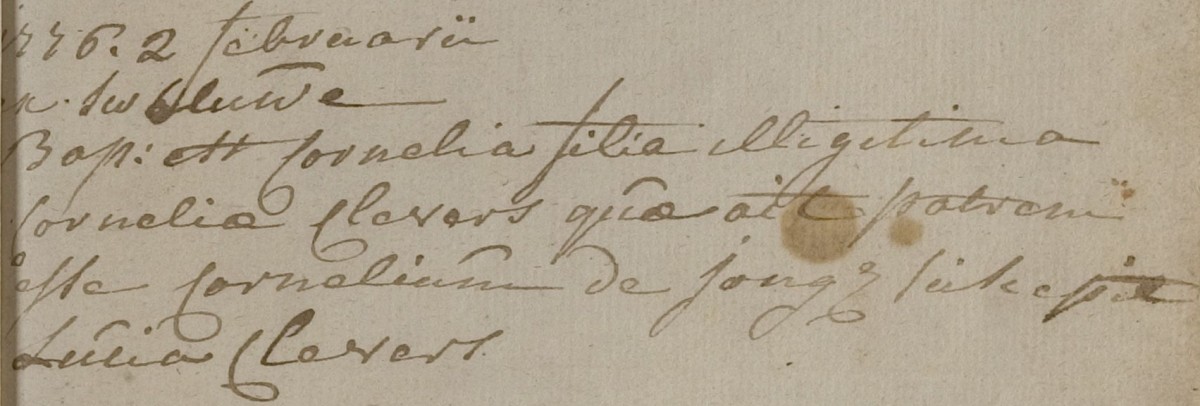 1776. 2 februarii
ex Swaluwe
Bap: est Cornelia filia illigitima
Corneliæ Clevers quæ ait patrem
esse Cornelium de Jong suscepit
Lucia Clevers